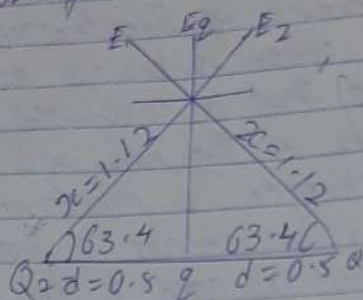 E Eq E2
x=1.12 x=1.12
63.4 63.4
Q2 d=0.5 q d=0.5 Q